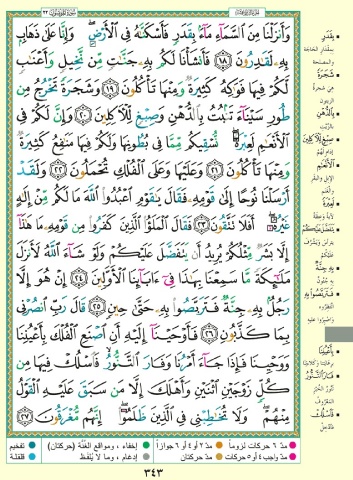 وَأَنزَلْنَا مِنَ ٱلسَّمَآءِ مَآءًۢ بِقَدَرٍ فَأَسْكَنَّـٰهُ فِى ٱلْأَرْضِ ۖ وَإِنَّا عَلَىٰ ذَهَابٍۭ
بِهِۦ لَقَـٰدِرُونَ ١٨ فَأَنشَأْنَا لَكُم بِهِۦ جَنَّـٰتٍ مِّن نَّخِيلٍ وَأَعْنَـٰبٍ
لَّكُمْ فِيهَا فَوَٰكِهُ كَثِيرَةٌ وَمِنْهَا تَأْكُلُونَ ١٩ وَشَجَرَةً تَخْرُجُ مِن
طُورِ سَيْنَآءَ تَنۢبُتُ بِٱلدُّهْنِ وَصِبْغٍ لِّلْـَٔاكِلِينَ ٢٠ وَإِنَّ لَكُمْ فِى
ٱلْأَنْعَـٰمِ لَعِبْرَةً ۖ نُّسْقِيكُم مِّمَّا فِى بُطُونِهَا وَلَكُمْ فِيهَا مَنَـٰفِعُ كَثِيرَةٌ
وَمِنْهَا تَأْكُلُونَ ٢١ وَعَلَيْهَا وَعَلَى ٱلْفُلْكِ تُحْمَلُونَ ٢٢ وَلَقَدْ
أَرْسَلْنَا نُوحًا إِلَىٰ قَوْمِهِۦ فَقَالَ يَـٰقَوْمِ ٱعْبُدُوا۟ ٱللَّهَ مَا لَكُم مِّنْ إِلَـٰهٍ
غَيْرُهُۥٓ ۖ أَفَلَا تَتَّقُونَ ٢٣ فَقَالَ ٱلْمَلَؤُا۟ ٱلَّذِينَ كَفَرُوا۟ مِن قَوْمِهِۦ مَا هَـٰذَآ
إِلَّا بَشَرٌ مِّثْلُكُمْ يُرِيدُ أَن يَتَفَضَّلَ عَلَيْكُمْ وَلَوْ شَآءَ ٱللَّهُ لَأَنزَلَ
مَلَـٰٓئِكَةً مَّا سَمِعْنَا بِهَـٰذَا فِىٓ ءَابَآئِنَا ٱلْأَوَّلِينَ ٢٤ إِنْ هُوَ إِلَّا
رَجُلٌۢ بِهِۦ جِنَّةٌ فَتَرَبَّصُوا۟ بِهِۦ حَتَّىٰ حِينٍ ٢٥ قَالَ رَبِّ ٱنصُرْنِى
بِمَا كَذَّبُونِ ٢٦ فَأَوْحَيْنَآ إِلَيْهِ أَنِ ٱصْنَعِ ٱلْفُلْكَ بِأَعْيُنِنَا
وَوَحْيِنَا فَإِذَا جَآءَ أَمْرُنَا وَفَارَ ٱلتَّنُّورُ ۙ فَٱسْلُكْ فِيهَا مِن
كُلٍّ زَوْجَيْنِ ٱثْنَيْنِ وَأَهْلَكَ إِلَّا مَن سَبَقَ عَلَيْهِ ٱلْقَوْلُ
مِنْهُمْ ۖ وَلَا تُخَـٰطِبْنِى فِى ٱلَّذِينَ ظَلَمُوٓا۟ ۖ إِنَّهُم مُّغْرَقُونَ ٢٧
بِقَدَرٍ
شَجَرَةً
بِٱلدُّهْنِ
صِبْغٍ لِّلْـَٔاكِلِينَ
ٱلْأَنْعَـٰمِ
لَعِبْرَةً
يَتَفَضَّلَ عَلَيْكُمْ
بِهِۦ جِنَّةٌ
فَتَرَبَّصُوا۟ بِهِۦ
بِأَعْيُنِنَا
فَارَ ٱلتَّنُّورُ
فَٱسْلُكْ
مدّ ٦ حركات لزوماً مدّ ٢ أو ٤ أو ٦ جوازاً إخفاء، ومواقع الغُنَّة (حركتان) تفخيم
مدّ واجب ٤ أو ٥ حركات مدّ حركتان إدغام، وما لا يُلفَظ قلقلة
٣٤٣